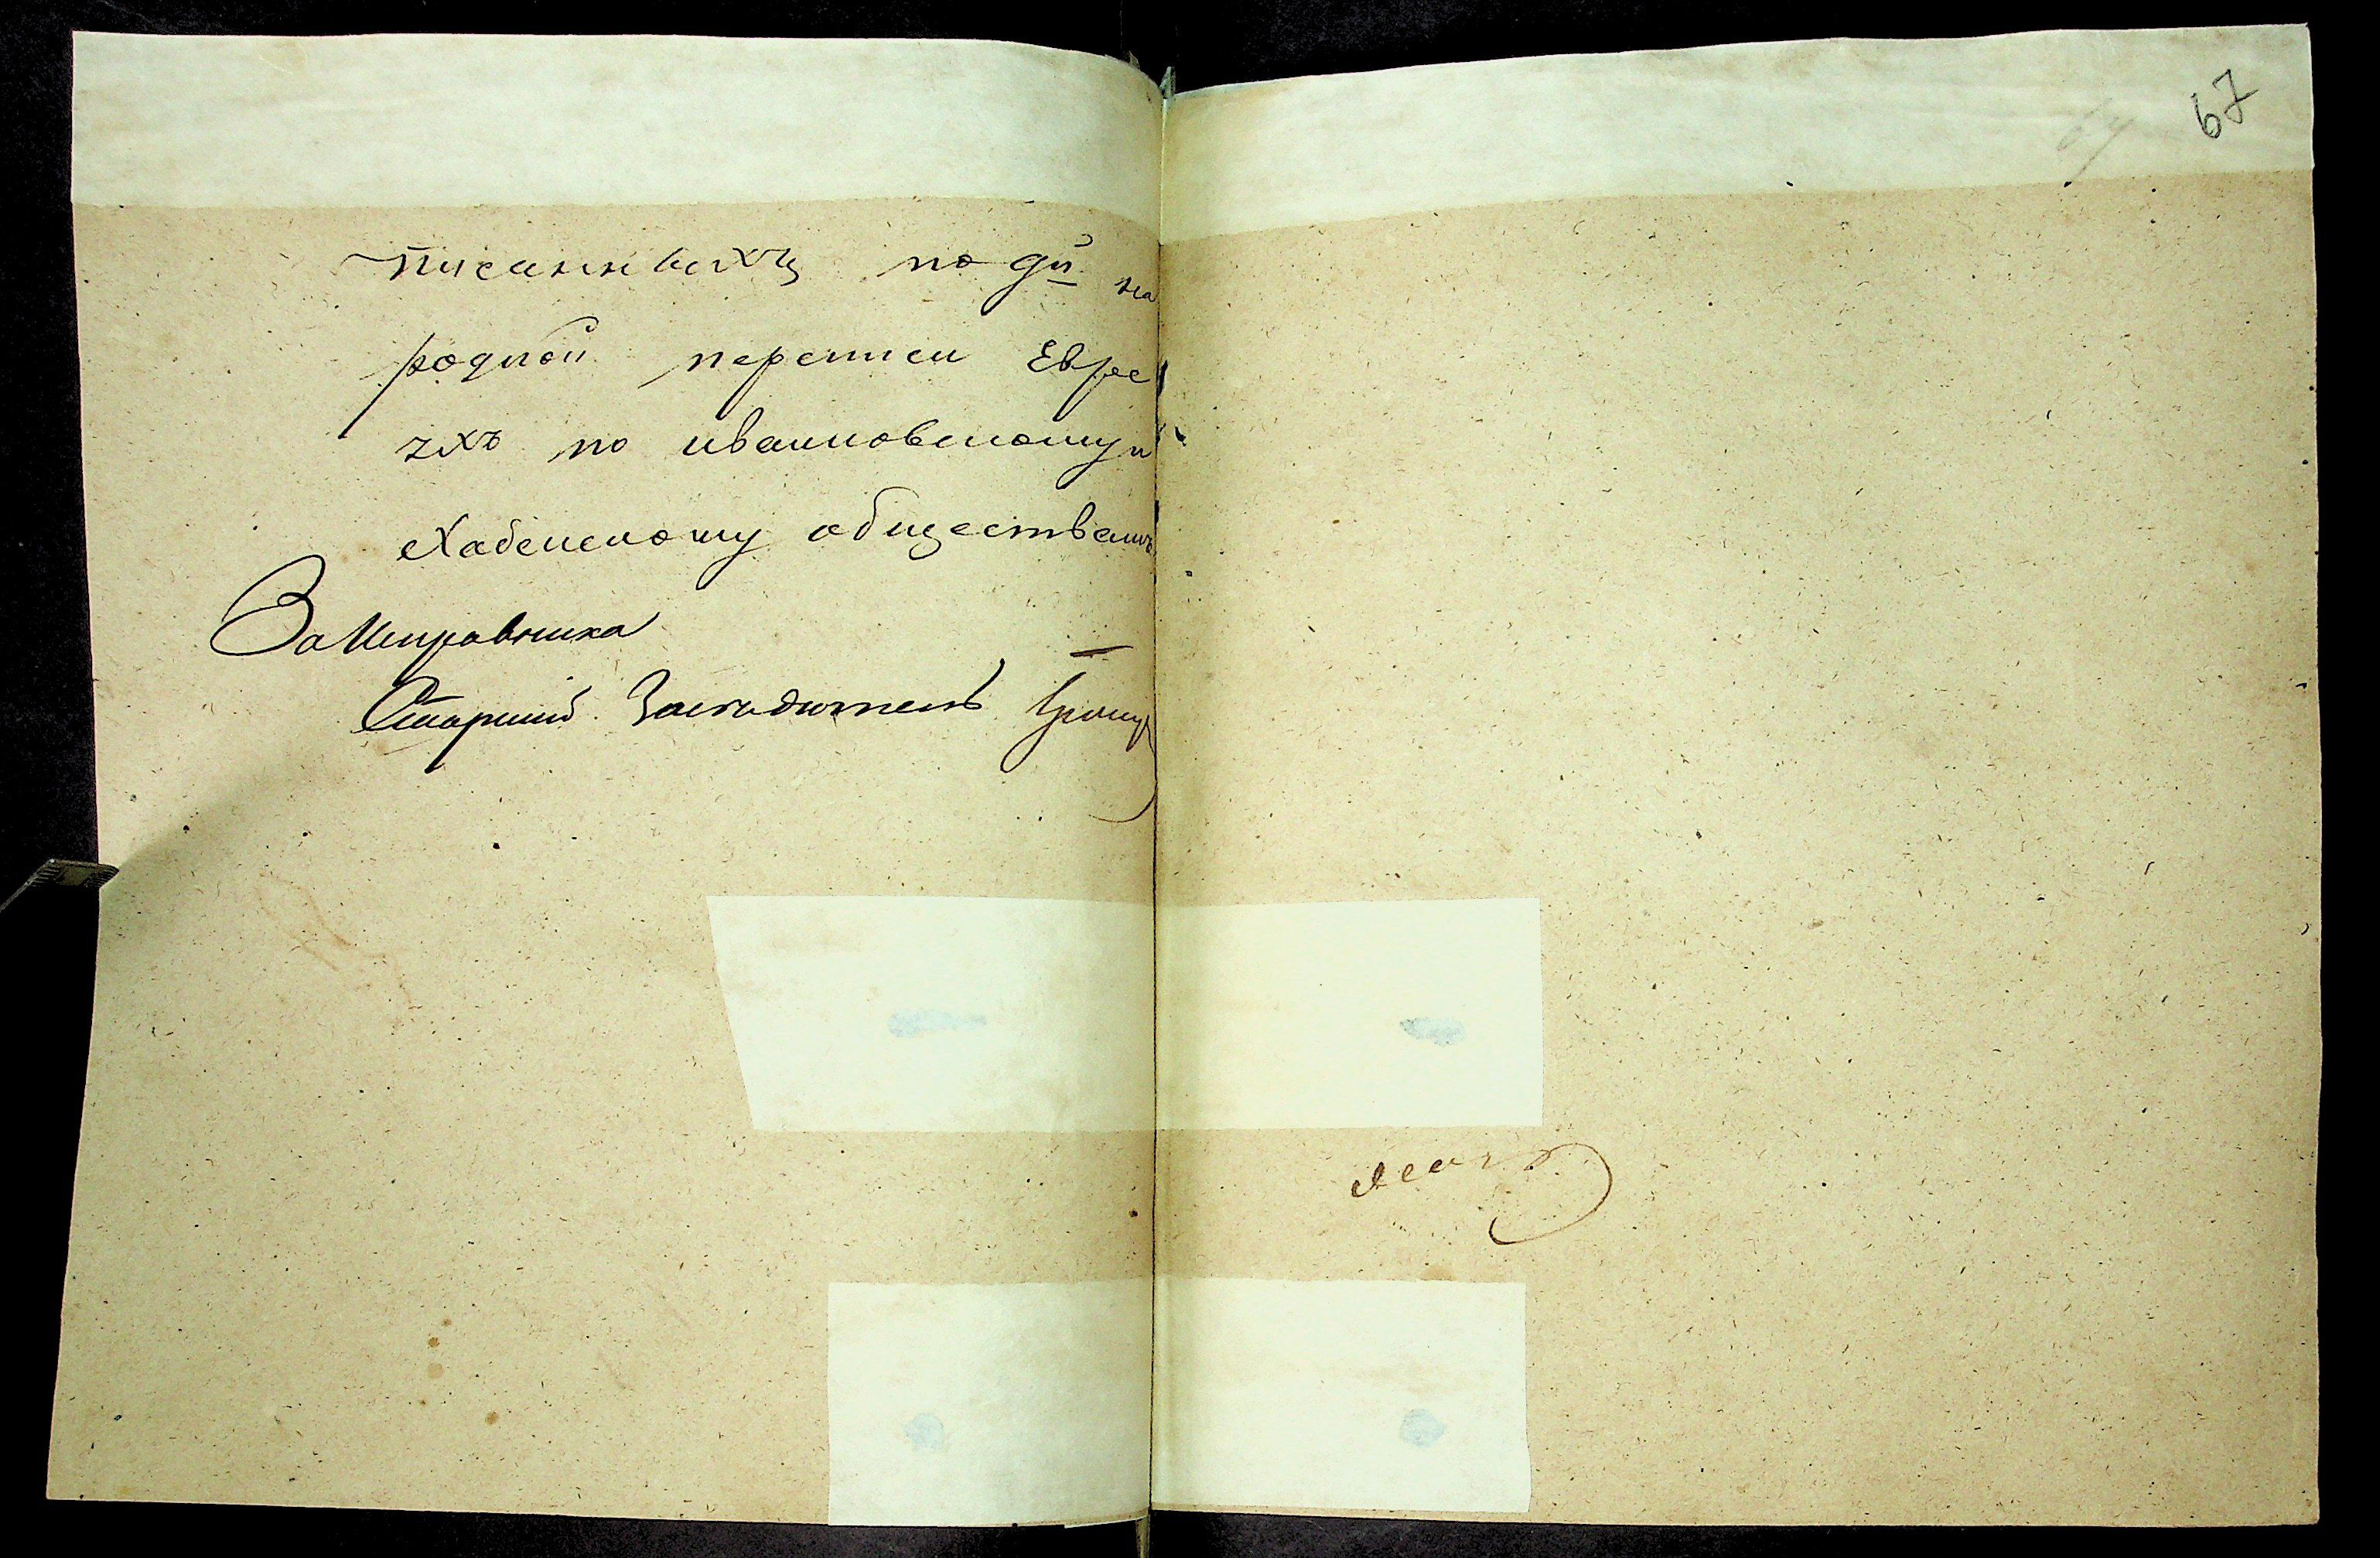 67
писанныхъ по 9й на
родной переписи Евре
яхъ по Ивановскому и
Хабенскому обществамъ
За Исправника
Старшій Засѣдатель